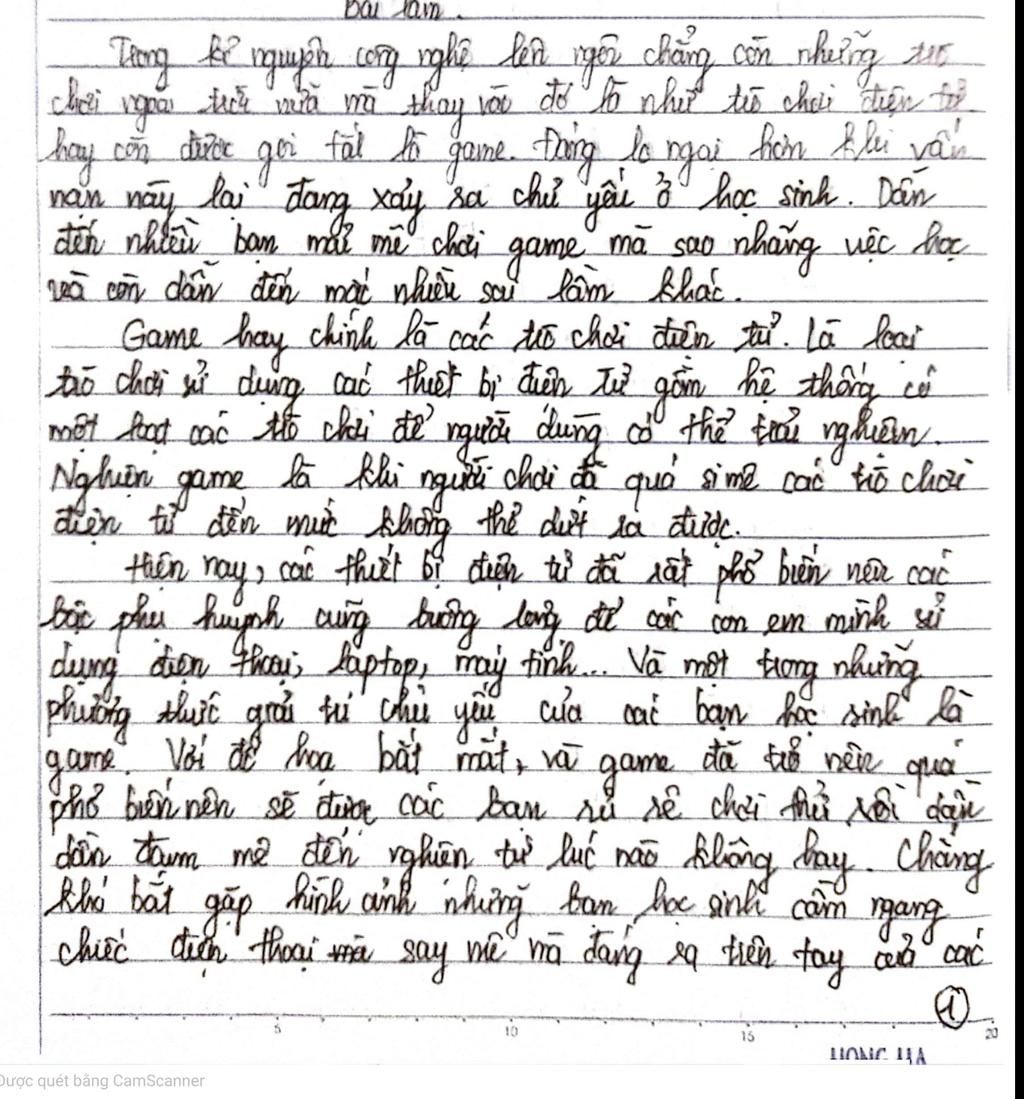 Bài làm.
Trong kỉ nguyên công nghệ lên ngôi chẳng còn những trò
chơi ngoài trời nữa mà thay vào đó là như trò chơi điện tử
hay còn được gọi tắt là game. Đáng lo ngại hơn khi vấn
nạn này lại đang xảy ra chủ yếu ở học sinh. Dẫn
đến nhiều bạn mải mê chơi game mà sao nhãng việc học
và còn dẫn đến mắc nhiều sai lầm khác.
Game hay chính là các trò chơi điện tử. Là loại
trò chơi sử dụng các thiết bị điện tử gồm hệ thống có
một loạt các trò chơi để người dùng có thể trải nghiệm.
Nghiện game là khi người chơi đã quá si mê các trò chơi
điện tử đến mức không thể dứt ra được.
Hiện nay, các thiết bị điện tử đã rất phổ biến nên các
bậc phụ huynh cũng buông lỏng để các con em mình sử
dụng điện thoại, laptop, máy tính... Và một trong những
phương thức giải trí chủ yếu của các bạn học sinh là
game. Với đồ họa bắt mắt, và game đã trở nên quá
phổ biến nên sẽ được các bạn rủ rê chơi thử rồi dần
dần đam mê đến nghiện từ lúc nào không hay. Chẳng
khó bắt gặp hình ảnh những bạn học sinh cầm ngang
chiếc điện thoại mà say mê mà đáng ra trên tay của các
1
5 10 15 20
HONG HA
Được quét bằng CamScanner